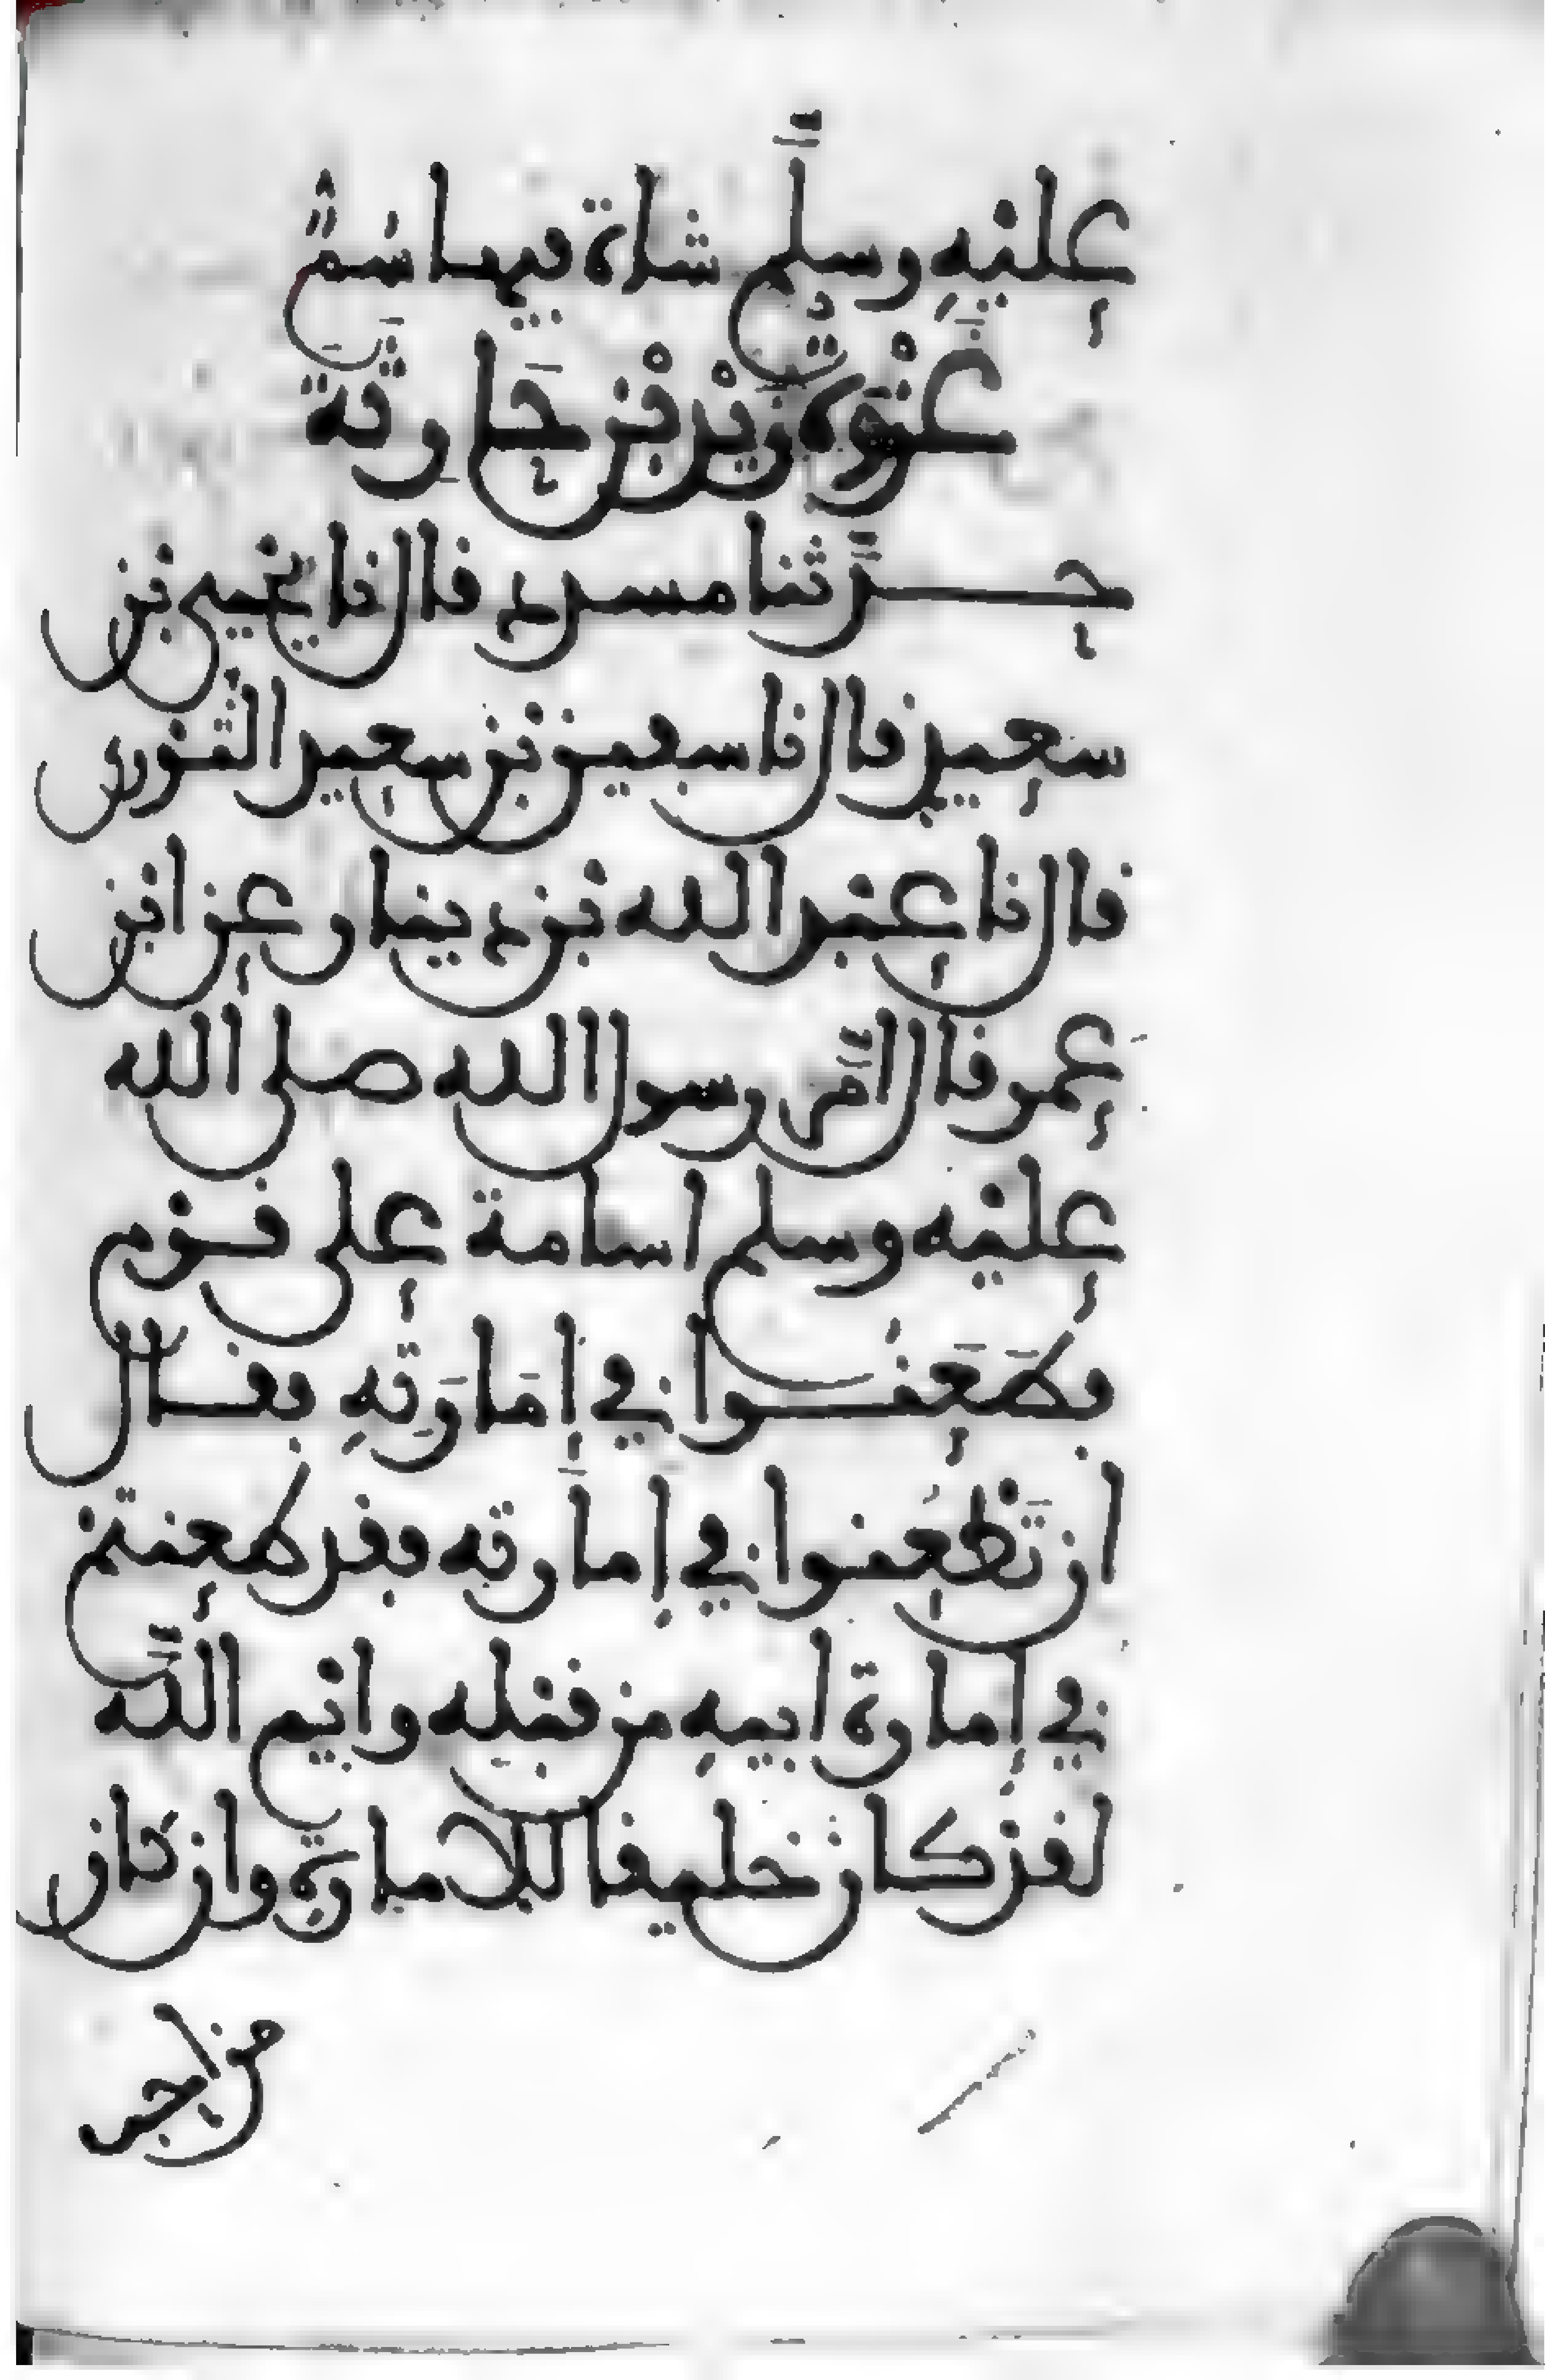 عليه وسلم شاة فيها سم
غزوة زيد بن حارثة
حدثنا مسدد قال نا يحيى بن
سعيد قال نا سفين بن سعيد الثوري
قال نا عبد الله بن دينار عن ابن
عمر قال أمر رسول الله صلى الله
عليه وسلم اسامة على قوم
فطعنوا في إمارته فقال
ان تطعنوا في إمارته فقد طعنتم
في إمارة ابيه من قبله وايم الله
لقد كان خليقا للامارة وان كان
من احب